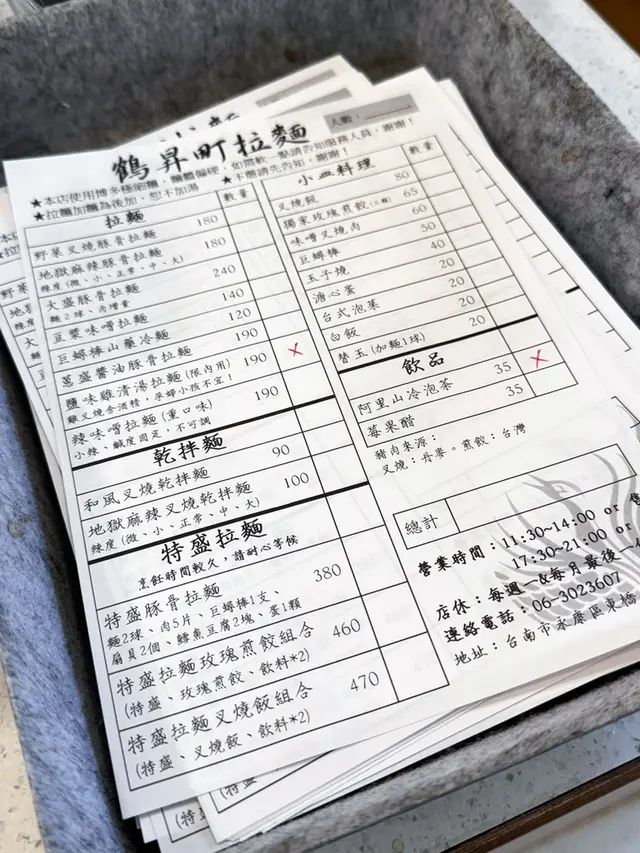 鶴昇町拉麵
人數：
★本店使用博多極細麵，麵體偏硬，如需軟一點請告知服務人員，謝謝！
★拉麵加麵為後加，恕不加湯 ★不需請先告知，謝謝！
拉麵 數量
野菜叉燒豚骨拉麵 180
地獄麻辣豚骨拉麵 180
辣度(微、小、正常、中、大)
大盛豚骨拉麵 240
麵2球、肉增量
豆漿味噌拉麵 140
巨蟳棒山藥冷麵 120
蔥盛醬油豚骨拉麵 190
鹽味雞清湯拉麵(限內用) 190 ×
雞叉燒含酒精，孕婦小孩不宜！
辣味噌拉麵(重口味) 190
小辣、鹹度固定，不可調
乾拌麵
和風叉燒乾拌麵 90
地獄麻辣叉燒乾拌麵 100
辣度(微、小、正常、中、大)
特盛拉麵
烹飪時間較久，請耐心等候
特盛豚骨拉麵 380
麵2球、肉5片、巨蟳棒1支、
扇貝2個、鱈魚豆腐2塊、蛋1顆
特盛拉麵玫瑰煎餃組合 460
(特盛、玫瑰煎餃、飲料*2)
特盛拉麵叉燒飯組合 470
(特盛、叉燒飯、飲料*2)
小皿料理 數量
叉燒飯 80
獨家玫瑰煎餃 65
味噌叉燒肉 60
巨蟳棒 50
玉子燒 40
溏心蛋 20
台式泡菜 20
白飯 20
替玉(加麵1球) 20
飲品
阿里山冷泡茶 35 ×
莓果醋 35
豬肉來源：
叉燒：丹麥。煎餃：台灣
總計
營業時間：11:30~14:00 or
17:30~21:00 or
店休：每週一&每月最後一
連絡電話：06-3023607
地址：台南市永康區東橋